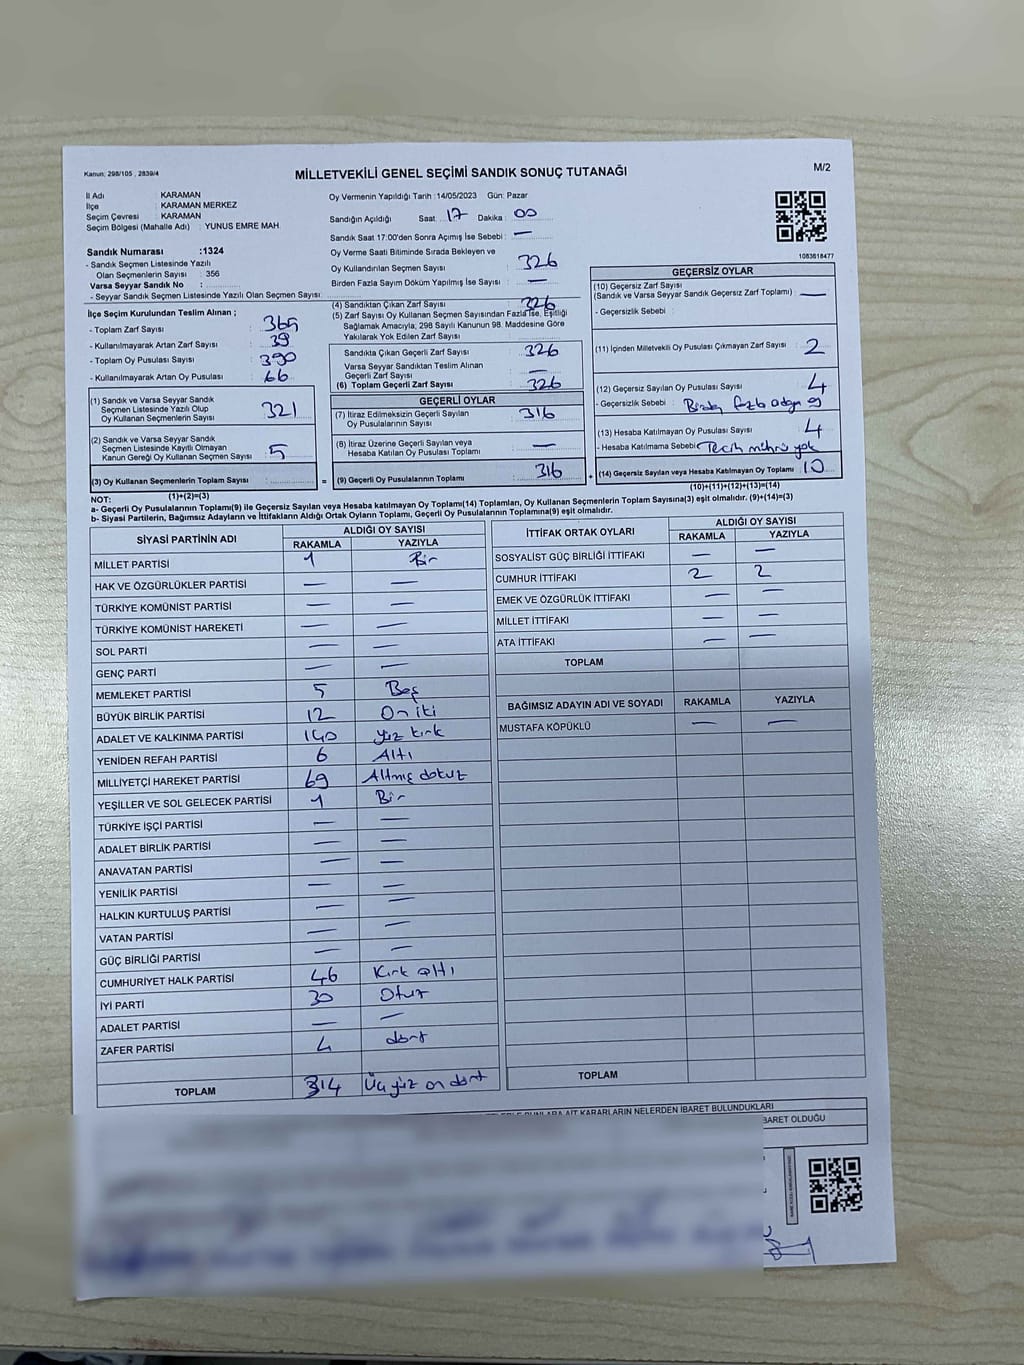 Kanun; 298/105 , 2839/4
MİLLETVEKİLİ GENEL SEÇİMİ SANDIK SONUÇ TUTANAĞI
M/2
İl Adı : KARAMAN
İlçe : KARAMAN MERKEZ
Seçim Çevresi : KARAMAN
Seçim Bölgesi (Mahalle Adı) : YUNUS EMRE MAH.
Sandık Numarası :1324
- Sandık Seçmen Listesinde Yazılı
Olan Seçmenlerin Sayısı : 356
Varsa Seyyar Sandık No :
- Seyyar Sandık Seçmen Listesinde Yazılı Olan Seçmen Sayısı:
İlçe Seçim Kurulundan Teslim Alınan ;
- Toplam Zarf Sayısı : 365
- Kullanılmayarak Artan Zarf Sayısı : 39
- Toplam Oy Pusulası Sayısı : 390
- Kullanılmayarak Artan Oy Pusulası : 66
(1) Sandık ve Varsa Seyyar Sandık
Seçmen Listesinde Yazılı Olup
Oy Kullanan Seçmenlerin Sayısı : 321
(2) Sandık ve Varsa Seyyar Sandık
Seçmen Listesinde Kayıtlı Olmayan
Kanun Gereği Oy Kullanan Seçmen Sayısı : 5
(3) Oy Kullanan Seçmenlerin Toplam Sayısı :
(1)+(2)=(3)
Oy Vermenin Yapıldığı Tarih :14/05/2023 Gün: Pazar
Sandığın Açıldığı Saat: 17 Dakika : 00
Sandık Saat 17:00'den Sonra Açımış İse Sebebi : —
Oy Verme Saati Bitiminde Sırada Bekleyen ve
Oy Kullandırılan Seçmen Sayısı : 326
Birden Fazla Sayım Döküm Yapılmış İse Sayısı : —
(4) Sandıktan Çıkan Zarf Sayısı : 326
(5) Zarf Sayısı Oy Kullanan Seçmen Sayısından Fazla İse, Eşitliği
Sağlamak Amacıyla; 298 Sayılı Kanunun 98. Maddesine Göre
Yakılarak Yok Edilen Zarf Sayısı :
Sandıkta Çıkan Geçerli Zarf Sayısı : 326
Varsa Seyyar Sandıktan Teslim Alınan
Geçerli Zarf Sayısı : —
(6) Toplam Geçerli Zarf Sayısı : 326
GEÇERLİ OYLAR
(7) İtiraz Edilmeksizin Geçerli Sayılan
Oy Pusulalarının Sayısı : 316
(8) İtiraz Üzerine Geçerli Sayılan veya
Hesaba Katılan Oy Pusulası Toplamı : —
(9) Geçerli Oy Pusulalarının Toplamı : 316
1083618477
GEÇERSİZ OYLAR
(10) Geçersiz Zarf Sayısı
(Sandık ve Varsa Seyyar Sandık Geçersiz Zarf Toplamı) : —
- Geçersizlik Sebebi :
(11) İçinden Milletvekili Oy Pusulası Çıkmayan Zarf Sayısı : 2
(12) Geçersiz Sayılan Oy Pusulası Sayısı : 4
- Geçersizlik Sebebi : Birden fazla adaya oy
(13) Hesaba Katılmayan Oy Pusulası Sayısı : 4
- Hesaba Katılmama Sebebi : Tecih mührü yok
(14) Geçersiz Sayılan veya Hesaba Katılmayan Oy Toplamı : 10
(10)+(11)+(12)+(13)=(14)
NOT:
a- Geçerli Oy Pusulasının Toplamı(9) ile Geçersiz Sayılan veya Hesaba katılmayan Oy Toplamı(14) Toplamları, Oy Kullanan Seçmenlerin Toplam Sayısına(3) eşit olmalıdır. (9)+(14)=(3)
b- Siyasi Partilerin, Bağımsız Adayların ve İttifakların Aldığı Ortak Oyların Toplamı, Geçerli Oy Pusulalarının Toplamına(9) eşit olmalıdır.
SİYASİ PARTİNİN ADI ALDIĞI OY SAYISI
RAKAMLA YAZIYLA
MİLLET PARTİSİ 1 Bir
HAK VE ÖZGÜRLÜKLER PARTİSİ — —
TÜRKİYE KOMÜNİST PARTİSİ — —
TÜRKİYE KOMÜNİST HAREKETİ — —
SOL PARTİ — —
GENÇ PARTİ — —
MEMLEKET PARTİSİ 5 Beş
BÜYÜK BİRLİK PARTİSİ 12 On iki
ADALET VE KALKINMA PARTİSİ 140 yüz kırk
YENİDEN REFAH PARTİSİ 6 Altı
MİLLİYETÇİ HAREKET PARTİSİ 69 Altmış dokuz
YEŞİLLER VE SOL GELECEK PARTİSİ 1 Bir
TÜRKİYE İŞÇİ PARTİSİ — —
ADALET BİRLİK PARTİSİ — —
ANAVATAN PARTİSİ — —
YENİLİK PARTİSİ — —
HALKIN KURTULUŞ PARTİSİ — —
VATAN PARTİSİ — —
GÜÇ BİRLİĞİ PARTİSİ — —
CUMHURİYET HALK PARTİSİ 46 Kırk altı
İYİ PARTİ 30 Otuz
ADALET PARTİSİ — —
ZAFER PARTİSİ 4 dört
TOPLAM 314 Üç yüz on dört
İTTİFAK ORTAK OYLARI ALDIĞI OY SAYISI
RAKAMLA YAZIYLA
SOSYALİST GÜÇ BİRLİĞİ İTTİFAKI — —
CUMHUR İTTİFAKI 2 2
EMEK VE ÖZGÜRLÜK İTTİFAKI — —
MİLLET İTTİFAKI — —
ATA İTTİFAKI — —
TOPLAM
BAĞIMSIZ ADAYIN ADI VE SOYADI RAKAMLA YAZIYLA
MUSTAFA KÖPÜKLÜ — —
TOPLAM
BUNLARA AİT KARARLARIN NELERDEN İBARET BULUNDUKLARI
İBARET OLDUĞU